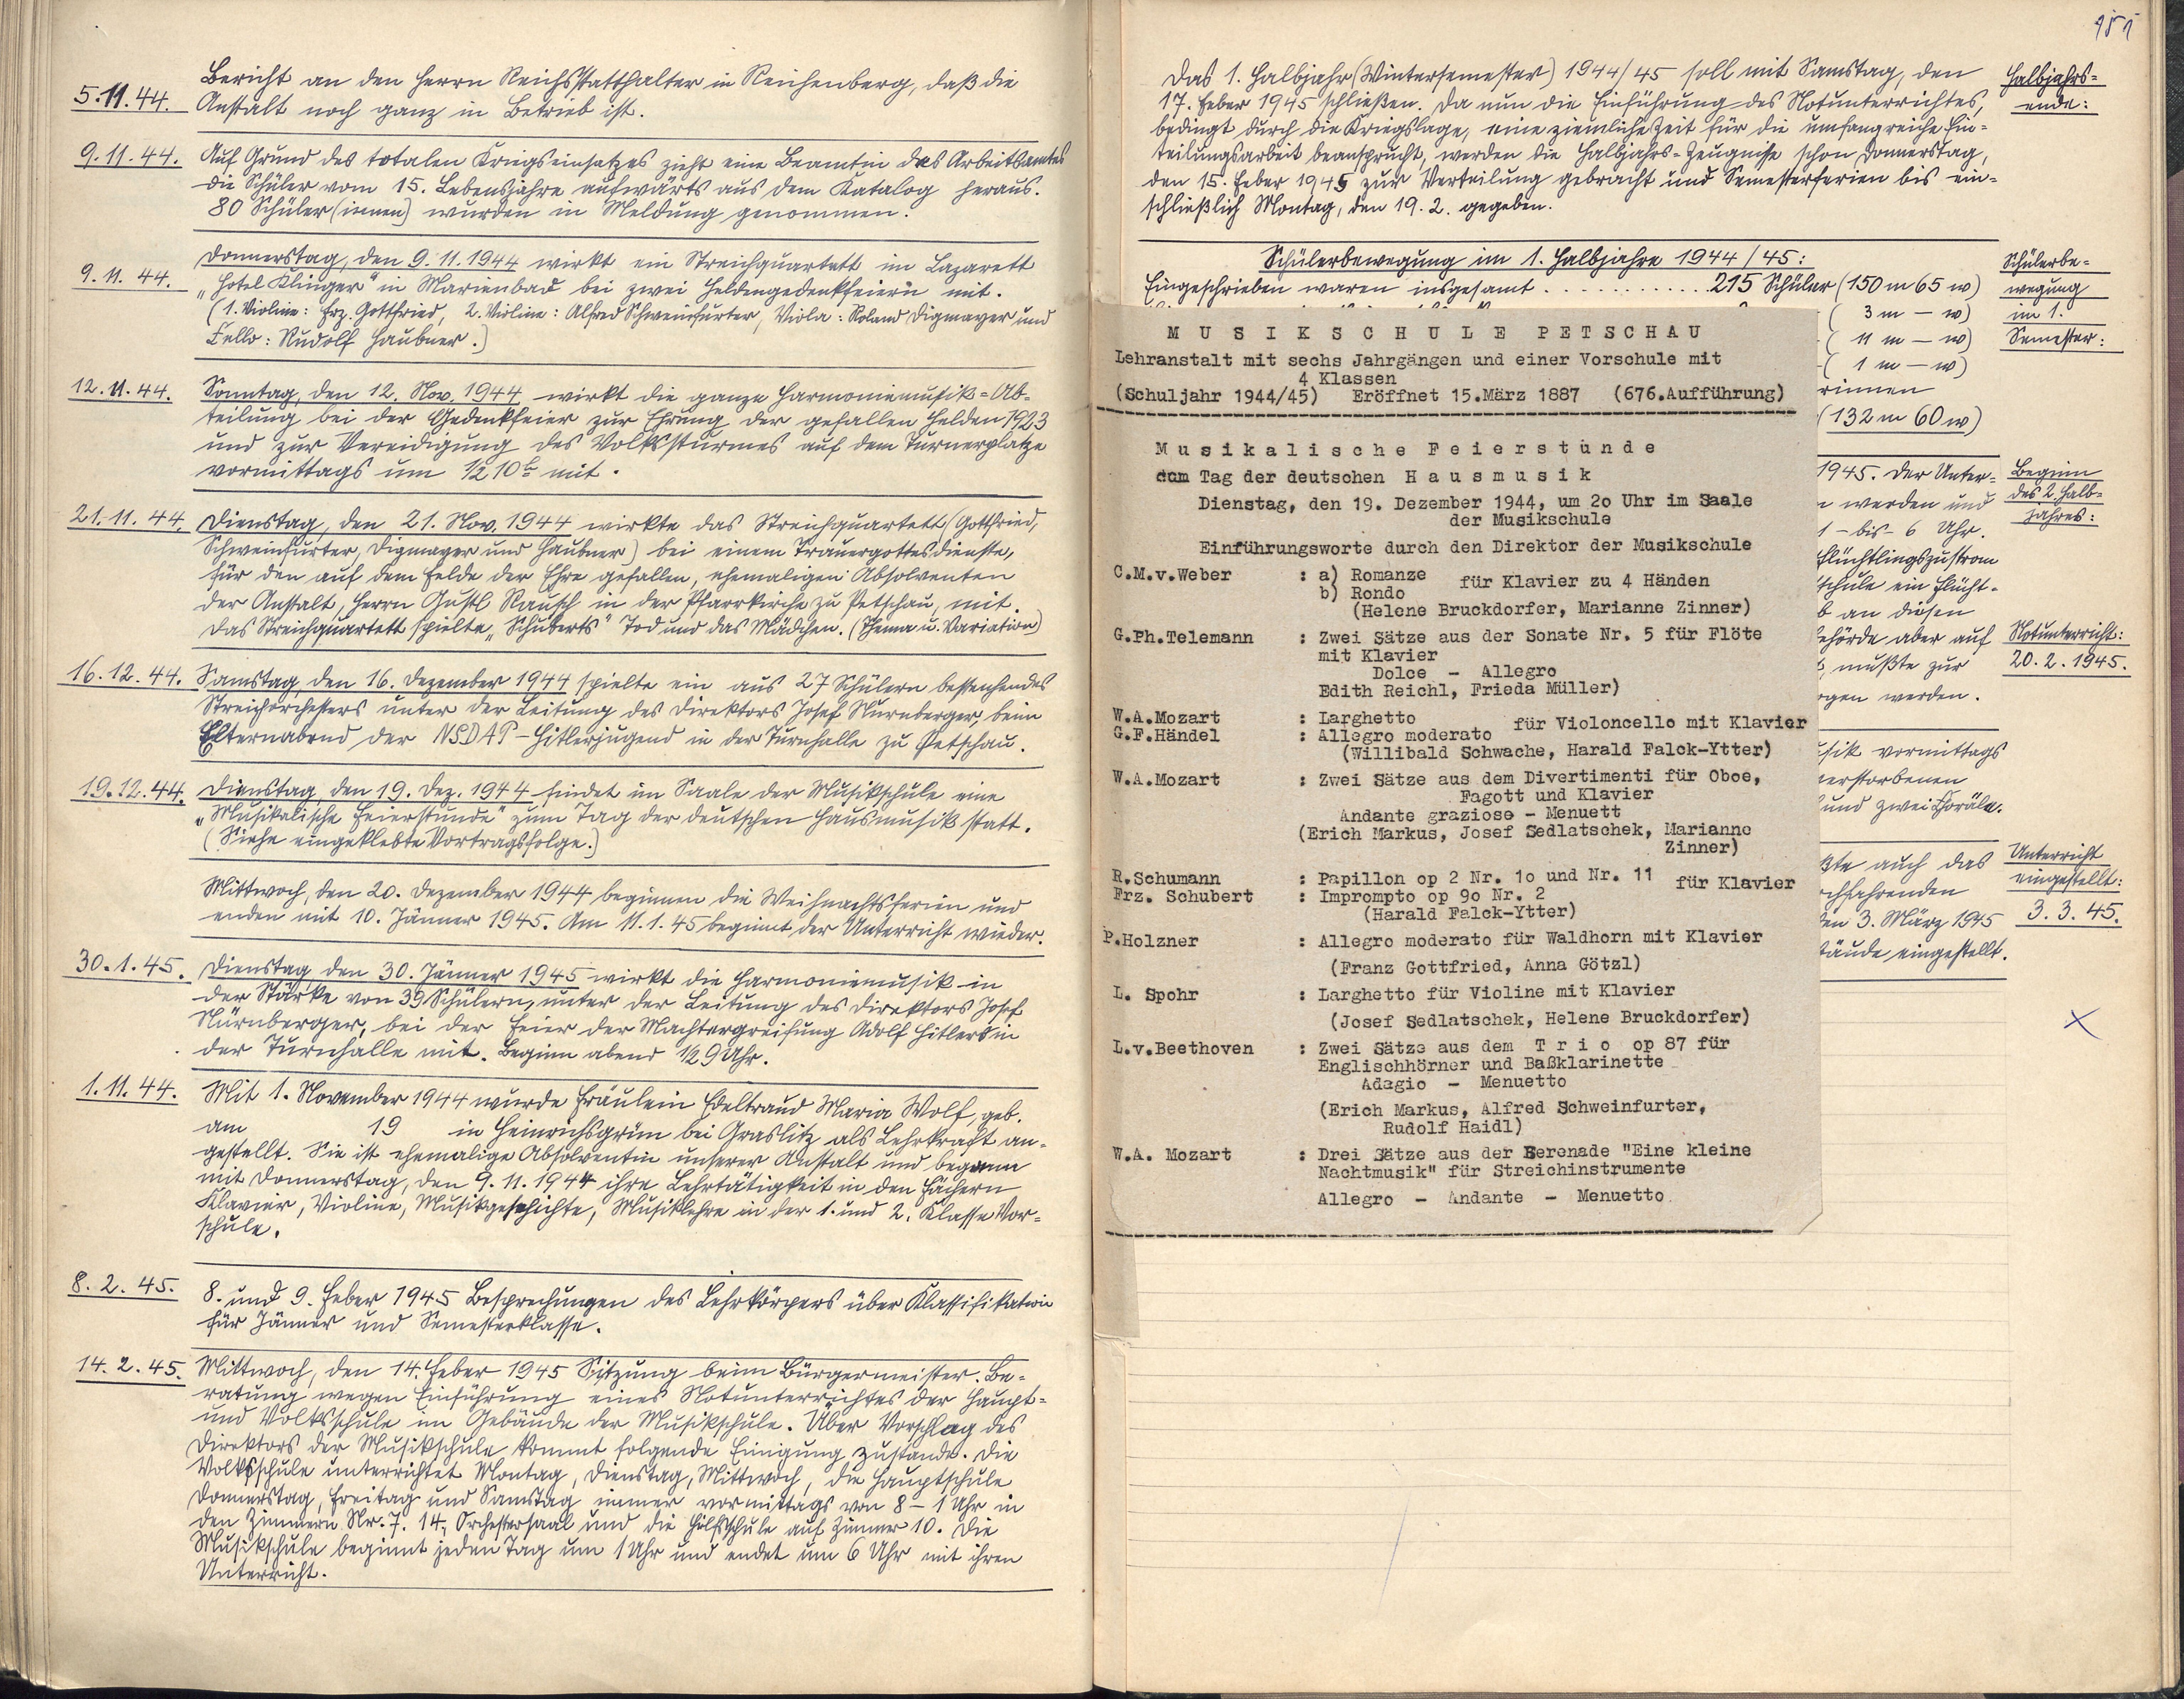 Bericht an den Herrn Reichsstatthalter in Reichenberg, daß die
5.11.44. Anstalt noch ganz in Betrieb ist.
9.11.44. Auf Grund des totalen Kriegseinsatzes zieht eine Beamtin des Arbeitsamtes
die Schüler vom 15. Lebensjahre aufwärts aus dem Katalog heraus.
80 Schüler (innen) wurden in Meldung genommen.
Donnerstag, den 9.11.1944 wirkt ein Streichquartett im Lazarett
9.11.44. „Hotel Klinger" in Marienbad bei zwei Heldengedenkfeiern mit.
(1. Violine: Frz. Gottfried, 2. Violine: Alfred Schweinfurter, Viola: Roland Digmayer und
Cello: Rudolf Haubner.)
12.11.44. Sonntag, den 12. Nov. 1944 wirkt die ganze Harmoniemusik=Ab-
teilung bei der Gedenkfeier zur Ehrung der gefallen Helden 1923
und zur Vereidigung des Volkssturmes auf dem Turnerplatze
vormittags um ½ 10h mit.
21.11.44. Dienstag, den 21. Nov. 1944 wirkte das Streichquartett (Gottfried,
Schweinfurter, Digmayer und Haubner) bei einem Trauergottesdienste,
für den auf dem Felde der Ehre gefallen, ehemaligen Absolventen
der Anstalt, Herrn Gustl Rausch in der Pfarrkirche zu Petschau, mit.
Das Streichquartett spielte „Schuberts" Tod und das Mädchen. (Thema u. Variation)
16.12.44. Samstag, den 16. Dezember 1944 spielte ein aus 27 Schülern bestehendes
Streichorchesters unter der Leitung des Direktors Josef Nürnberger, beim
Elternabend der NSDAP-Hitlerjugend in der Turnhalle zu Petschau.
19.12.44. Dienstag, den 19. Dez. 1944 findet im Saale der Musikschule eine
„Musikalische Feierstunde" zum Tag der deutschen Hausmusik statt.
(Siehe eingeklebte Vortragsfolge.)
Mittwoch, den 20. Dezember 1944 beginnen die Weihnachtsferien und
enden mit 10. Jänner 1945. Am 11.1.45 beginnt der Unterricht wieder.
30.1.45. Dienstag, den 30. Jänner 1945 wirkt die Harmoniemusik in
der Stärke von 39 Schülern, unter der Leitung des Direktors Josef
Nürnberger, bei der Feier der Machtergreifung Adolf Hitlers in
der Turnhalle mit. Beginn abend ½9 Uhr.
1.11.44. Mit 1. November 1944 wurde Fräulein Edeltraud Maria Wolf, geb.
am 19 in Heinrichsgrün bei Graslitz als Lehrkraft an-
gestellt. Sie ist ehemalige Absolventin unserer Anstalt und begann
mit Donnerstag, den 9.11.1944 ihre Lehrtätigkeit in den Fächern
Klavier, Violine, Musikgeschichte, Musiklehre in der 1. und 2. Klasse Vor-
schule.
8.2.45. 8. und 9. Feber 1945 Besprechungen des Lehrkörpers über Klassifikation
für Jänner und Semesterklasse.
14.2.45. Mittwoch, den 14. Feber 1945 Sitzung beim Bürgermeister. Be-
ratung wegen Einführung eines Notunterrichtes der Haupt-
und Volksschule im Gebäude der Musikschule. Über Vorschlag des
Direktors der Musikschule kommt folgende Einigung zustande. Die
Volksschule unterrichtet Montag, Dienstag, Mittwoch, die Hauptschule
Donnerstag, Freitag und Samstag immer vormittags von 8 – 1 Uhr in
den Zimmern Nr. 7. 14, Orchestersaal und die Hilfsschule auf Zimmer 10. Die
Musikschule beginnt jeden Tag um 1 Uhr und endet um 6 Uhr mit ihren
Unterricht.
151
Das 1. Halbjahr (Wintersemester) 1944/45 soll mit Samstag, den
17. Feber 1945 schließen. Da nun die Einführung des Notunterrichtes,
bedingt durch die Kriegslage, eine ziemliche Zeit für die umfangreiche Ein-
teilungsarbeit beansprucht, werden die Halbjahrs-Zeugnisse schon Donnerstag,
den 15. Feber 1945 zur Verteilung gebracht und Semesterferien bis ein-
schließlich Montag, den 19.2. gegeben.
Halbjahrs-
ende:
Schülerbewegung im 1. Halbjahre 1944/45:
Eingeschrieben waren insgesamt . . . . . . . . . . . 215 Schüler (150 m 65 w)
( 3 m – w)
( 11 m – w)
( 1 m – w)
rinnen
(132 m 60 w)
Schülerbe-
wegung
im 1.
Semester:
MUSIKSCHULE PETSCHAU
Lehranstalt mit sechs Jahrgängen und einer Vorschule mit
4 Klassen
(Schuljahr 1944/45) Eröffnet 15.März 1887 (676.Aufführung)
Musikalische Feierstunde
zum Tag der deutschen Hausmusik
Dienstag, den 19. Dezember 1944, um 2o Uhr im Saale
der Musikschule
Einführungsworte durch den Direktor der Musikschule
C.M.v.Weber : a) Romanze
b) Rondo für Klavier zu 4 Händen
(Helene Bruckdorfer, Marianne Zinner)
G.Ph.Telemann : Zwei Sätze aus der Sonate Nr. 5 für Flöte
mit Klavier
Dolce - Allegro
Edith Reichl, Frieda Müller)
W.A.Mozart : Larghetto
G.F.Händel : Allegro moderato für Violoncello mit Klavier
(Willibald Schwache, Harald Falck-Ytter)
W.A.Mozart : Zwei Sätze aus dem Divertimenti für Oboe,
Fagott und Klavier
Andante graziose - Menuett
(Erich Markus, Josef Sedlatschek, Marianne
Zinner)
R.Schumann : Papillon op 2 Nr. 1o und Nr. 11
Frz. Schubert : Imprompto op 9o Nr. 2 für Klavier
(Harald Falck-Ytter)
P.Holzner : Allegro moderato für Waldhorn mit Klavier
(Franz Gottfried, Anna Götzl)
L. Spohr : Larghetto für Violine mit Klavier
(Josef Sedlatschek, Helene Bruckdorfer)
L.v.Beethoven : Zwei Sätze aus dem Trio op 87 für
Englischhörner und Baßklarinette
Adagio - Menuetto
(Erich Markus, Alfred Schweinfurter,
Rudolf Haidl)
W.A. Mozart : Drei Sätze aus der Serenade "Eine kleine
Nachtmusik" für Streichinstrumente
Allegro - Andante - Menuetto
1945. Der Unter-
werden und
1 – bis 6 Uhr.
Flüchtlingszustrom
schule ein Flücht-
an diesen
aber auf
mußte zur
werden.
Beginn
des 2. Halb-
jahres:
Notunterricht:
20.2.1945.
vormittags
verstorbenen
und zwei Choräle.
auch das
den 3. März 1945
eingestellt.
Unterricht
eingestellt:
3.3.45.